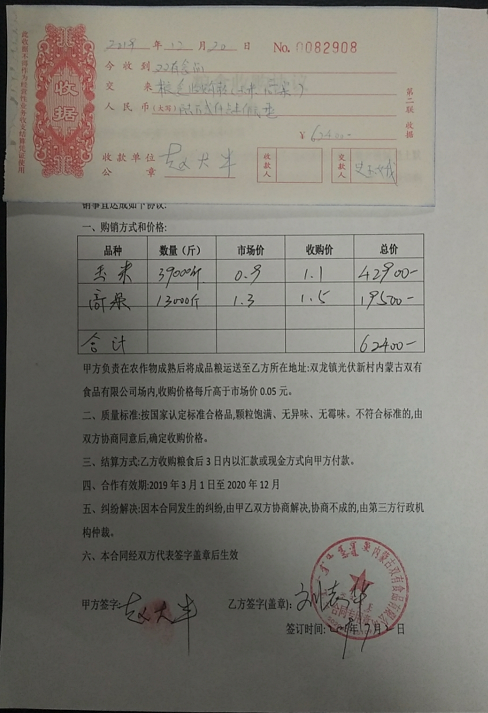 2019年12月20日 No. 0082908
今收到
交来
人民币(大写)
¥ 62400-
收款单位 大牛
公章
收款人
交款人
第二联 收据
收据
此收据不得作为经营性业务收支结算凭证使用
销事宜达成如下协议:
一、购销方式和价格:
品种 数量(斤) 市场价 收购价 总价
玉米 39000斤 0.9 1.1 42900-
高粱 13000斤 1.3 1.5 19500-
合计 62400-
甲方负责在农作物成熟后将成品粮运送至乙方所在地址:双龙镇光伏新村内蒙古双有
食品有限公司场内,收购价格每斤高于市场价 0.05 元。
二、质量标准:按国家认定标准合格品,颗粒饱满、无异味、无霉味。不符合标准的,由
双方协商同意后,确定收购价格。
三、结算方式:乙方收购粮食后 3 日内以汇款或现金方式向甲方付款。
四、合作有效期:2019 年 3 月 1 日至 2020 年 12 月
五、纠纷解决:因本合同发生的纠纷,由甲乙双方协商解决,协商不成的,由第三方行政机
构仲裁。
六、本合同经双方代表签字盖章后生效
内蒙古双有食品有限公司
合同专用章
甲方签字: 大牛 乙方签字(盖章):
签订时间: 年 月 日